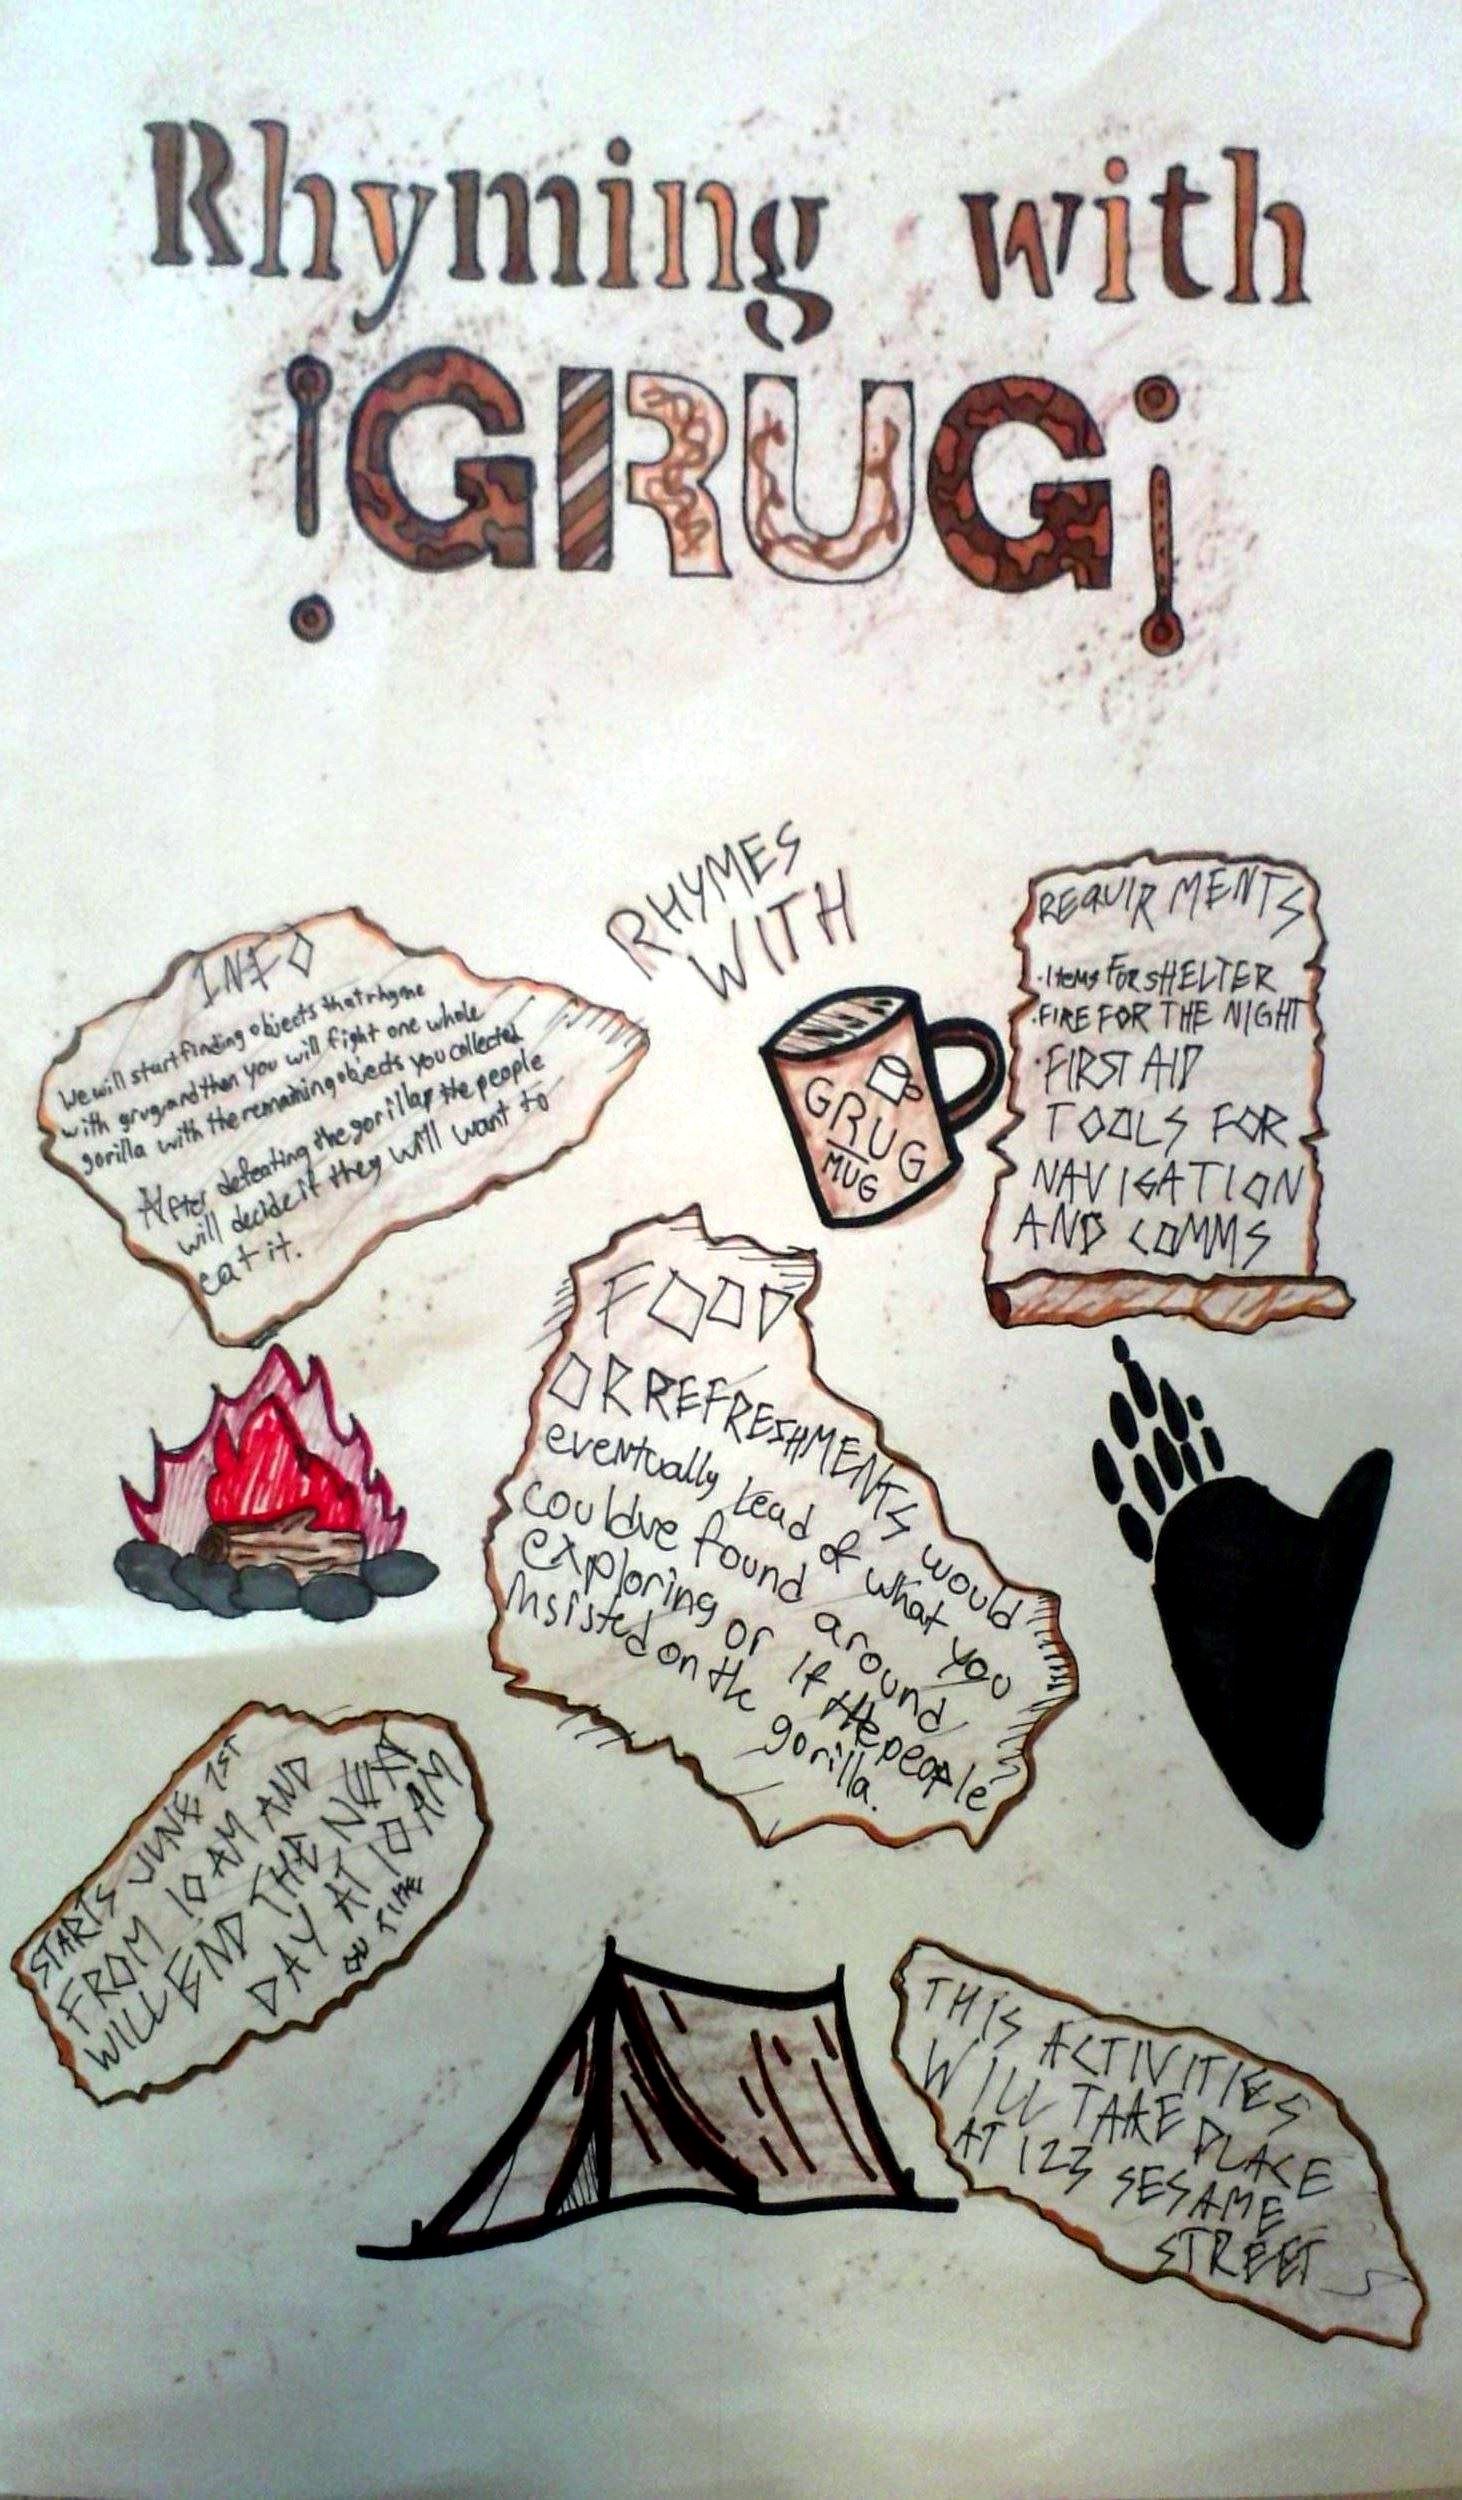 Rhyming with
¡GRUG!
INFO
We will start finding objects that rhyme
with grug and then you will fight one whole
gorilla with the remaining objects you collected
After defeating the gorilla, the people
will decide if they will want to
eat it.
RHYMES
WITH
GRUG
MUG
REQUIRMENTS
· Items FOR SHELTER
· FIRE FOR THE NIGHT
· FIRST AID
TOOLS FOR
NAVIGATION
AND COMMS
FOOD
OR REFRESHMENTS
eventually lead of what you would
couldve found around
exploring or if the people
insisted on the gorilla.
STARTS JUNE 1ST
FROM 10 AM AND
WILL END THE NEXT
DAY AT 10 AM
ON TIME
THIS ACTIVITIES
WILL TAKE PLACE
AT 123 SESAME
STREET